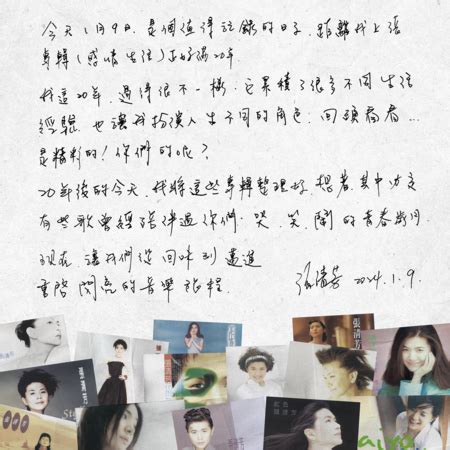 今天1月9日，是個值得記錄的日子，距離我上張
專輯（感情生活）正好滿20年．
我這20年，過得很不一樣，它累積了很多不同生活
經驗，也讓我扮演人生不同的角色．回頭看看…
是精彩的！你們的呢？
20年後的今天，我將這些專輯整理好，想著，其中必定
有些歌曾經陪伴過你們．哭．笑．鬧的青春歲月．
現在，讓我們從回味到
重啓閃亮的音樂旅程．
張清芳 2024.1.9.
張清芳
張清芳